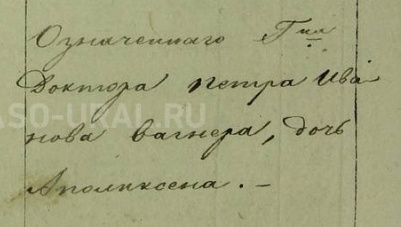 Означеннаго Гна
Доктора Петра Ива
нова Вагнера, дочь
Аполиксена. –
ASO-URAL.RU